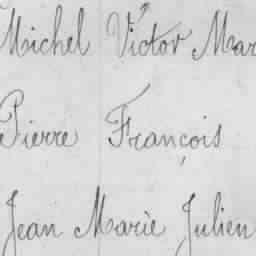 Michel Victor Mar
Pierre François
Jean Marie Julien